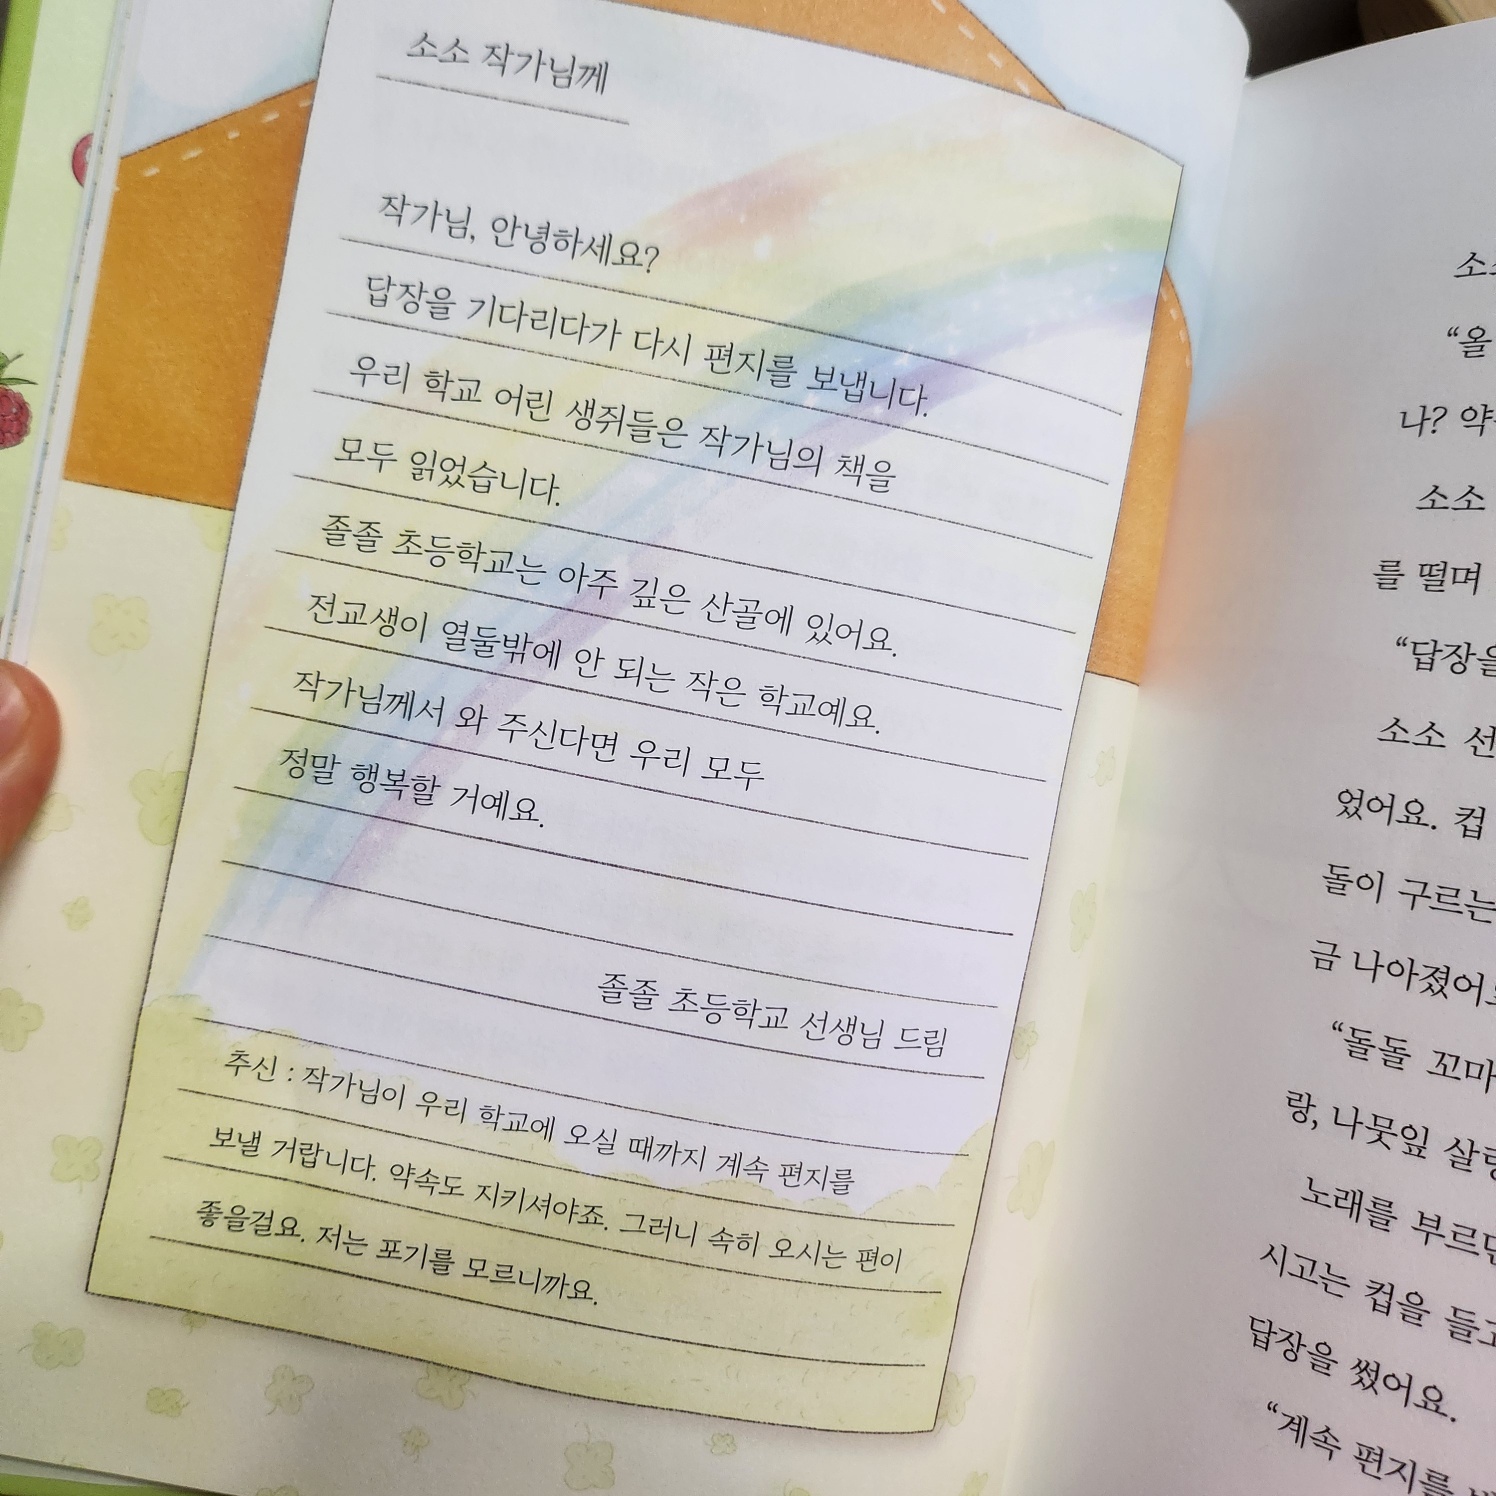 소소 작가님께
작가님, 안녕하세요?
답장을 기다리다가 다시 편지를 보냅니다.
우리 학교 어린 생쥐들은 작가님의 책을
모두 읽었습니다.
졸졸 초등학교는 아주 깊은 산골에 있어요.
전교생이 열둘밖에 안 되는 작은 학교예요.
작가님께서 와 주신다면 우리 모두
정말 행복할 거예요.
졸졸 초등학교 선생님 드림
추신 : 작가님이 우리 학교에 오실 때까지 계속 편지를
보낼 거랍니다. 약속도 지키셔야죠. 그러니 속히 오시는 편이
좋을걸요. 저는 포기를 모르니까요.
“올
나? 약
소소
를 떨며
“답장을
소소 선
었어요. 컵
돌이 구르는
금 나아졌어
“돌돌 꼬마
랑, 나뭇잎 살랑
노래를 부르던
시고는 컵을 들고
답장을 썼어요.
“계속 편지를